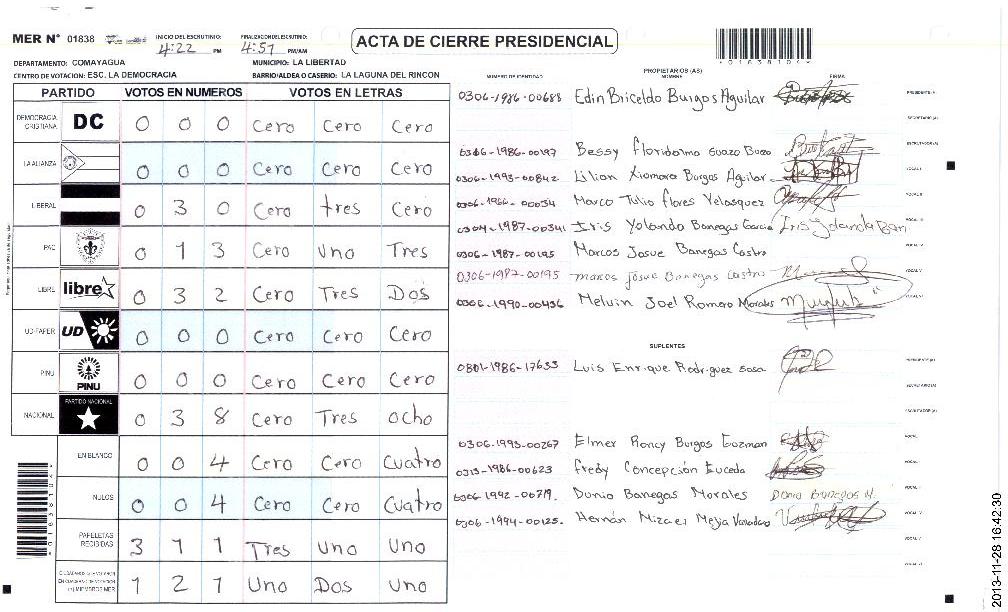 MER N° 01838
INICIO DEL ESCRUTINIO:
4:22 PM
FINALIZACION DEL ESCRUTINIO:
4:57 PM/AM
ACTA DE CIERRE PRESIDENCIAL
*01838101*
DEPARTAMENTO: COMAYAGUA
MUNICIPIO: LA LIBERTAD
CENTRO DE VOTACION: ESC. LA DEMOCRACIA
BARRIO/ALDEA O CASERIO: LA LAGUNA DEL RINCON
PARTIDO VOTOS EN NUMEROS VOTOS EN LETRAS
DEMOCRACIA CRISTIANA DC 0 0 0 Cero Cero Cero
LA ALIANZA 0 0 0 Cero Cero Cero
LIBERAL 0 3 0 Cero tres Cero
PAC 0 1 3 Cero Uno Tres
LIBRE libre 0 3 2 Cero Tres Dos
UD-FAPER UD 0 0 0 Cero Cero Cero
PINU PINU 0 0 0 Cero Cero Cero
NACIONAL PARTIDO NACIONAL 0 3 8 Cero Tres ocho
EN BLANCO 0 0 4 Cero Cero Cuatro
NULOS 0 0 4 Cero Cero Cuatro
PAPELETAS RECIBIDAS 3 1 1 Tres Uno Uno
EN CUADERNO DE VOTACION (+) MIEMBROS MER 1 2 1 Uno Dos Uno
NUMERO DE IDENTIDAD
PROPIETARIOS (AS)
NOMBRE
FIRMA
0306-1986-00688 Edin Briceldo Burgos Aguilar
PRESIDENTE (A)
SECRETARIO (A)
0306-1986-00197 Bessy Floridalma Suazo Buezo
ESCRUTADOR (A)
0306-1993-00842 Lilian Xiomara Burgos Aguilar
VOCAL I
0306-1966-00034 Marco Tulio flores Velasquez
VOCAL II
0304-1987-00341 Iris Yolanda Banegas Garcia Iris Yolanda Ban
VOCAL III
0306-1987-00195 Marcos Josue Banegas Castro
VOCAL IV
0306-1987-00195 marcos Josue Banegas Castro
VOCAL V
0306-1990-00436 Melvin Joel Romero Morales
VOCAL VI
SUPLENTES
0801-1986-17633 Luis Enrique Rodriguez Sosa
PRESIDENTE (A)
SECRETARIO (A)
ESCRUTADOR (A)
0306-1993-00267 Elmer Roney Burgos Guzman
VOCAL I
0313-1986-00623 fredy Concepción Euceda
VOCAL II
0306 1992-00719. Dunia Banegas Morales Dunia Banegas M.
VOCAL III
0306-1994-00125. Hernán Mizael Mejia
VOCAL IV
VOCAL V
VOCAL VI
*01838101*
2013-11-28 16:42:30